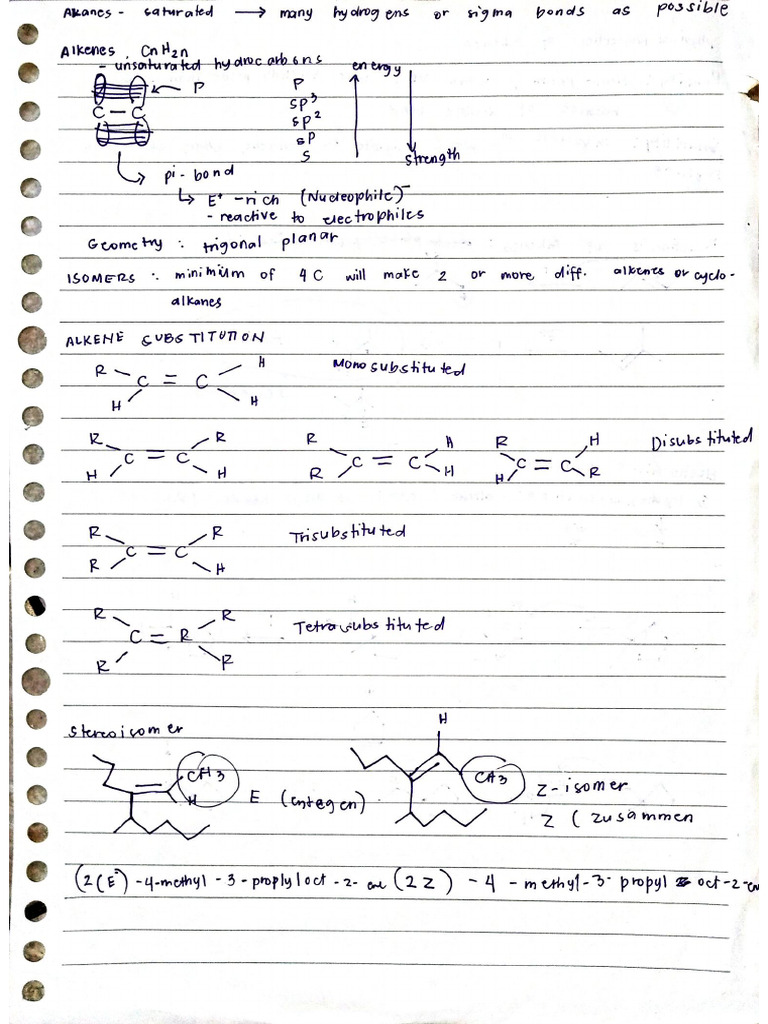 Alkanes - saturated → many hydrogens or sigma bonds as possible
Alkenes CnH2n
- unsaturated hydrocarbons
energy
P
P
sp³
C — C
sp²
sp
s
strength
pi-bond
↳ E⁺ -rich (Nucleophile)⁻
- reactive to electrophiles
Geometry : trigonal planar
ISOMERS : minimum of 4 C will make 2 or more diff. alkenes or cyclo-
alkanes
ALKENE SUBSTITUTION
R H
C = C
H H
Monosubstituted
R R
C = C
H H
R H
C = C
R H
R H
C = C
H R
Disubstituted
R R
C = C
R H
Trisubstituted
R R
C = R
R R
Tetrasubstituted
Stereoisomer
CH3
H
E (entegen)
H
CH3
Z-isomer
Z (zusammen
(2(E) -4-methyl -3- proplyloct -2- ene (2Z) -4 -methyl-3- propyl oct-2-en